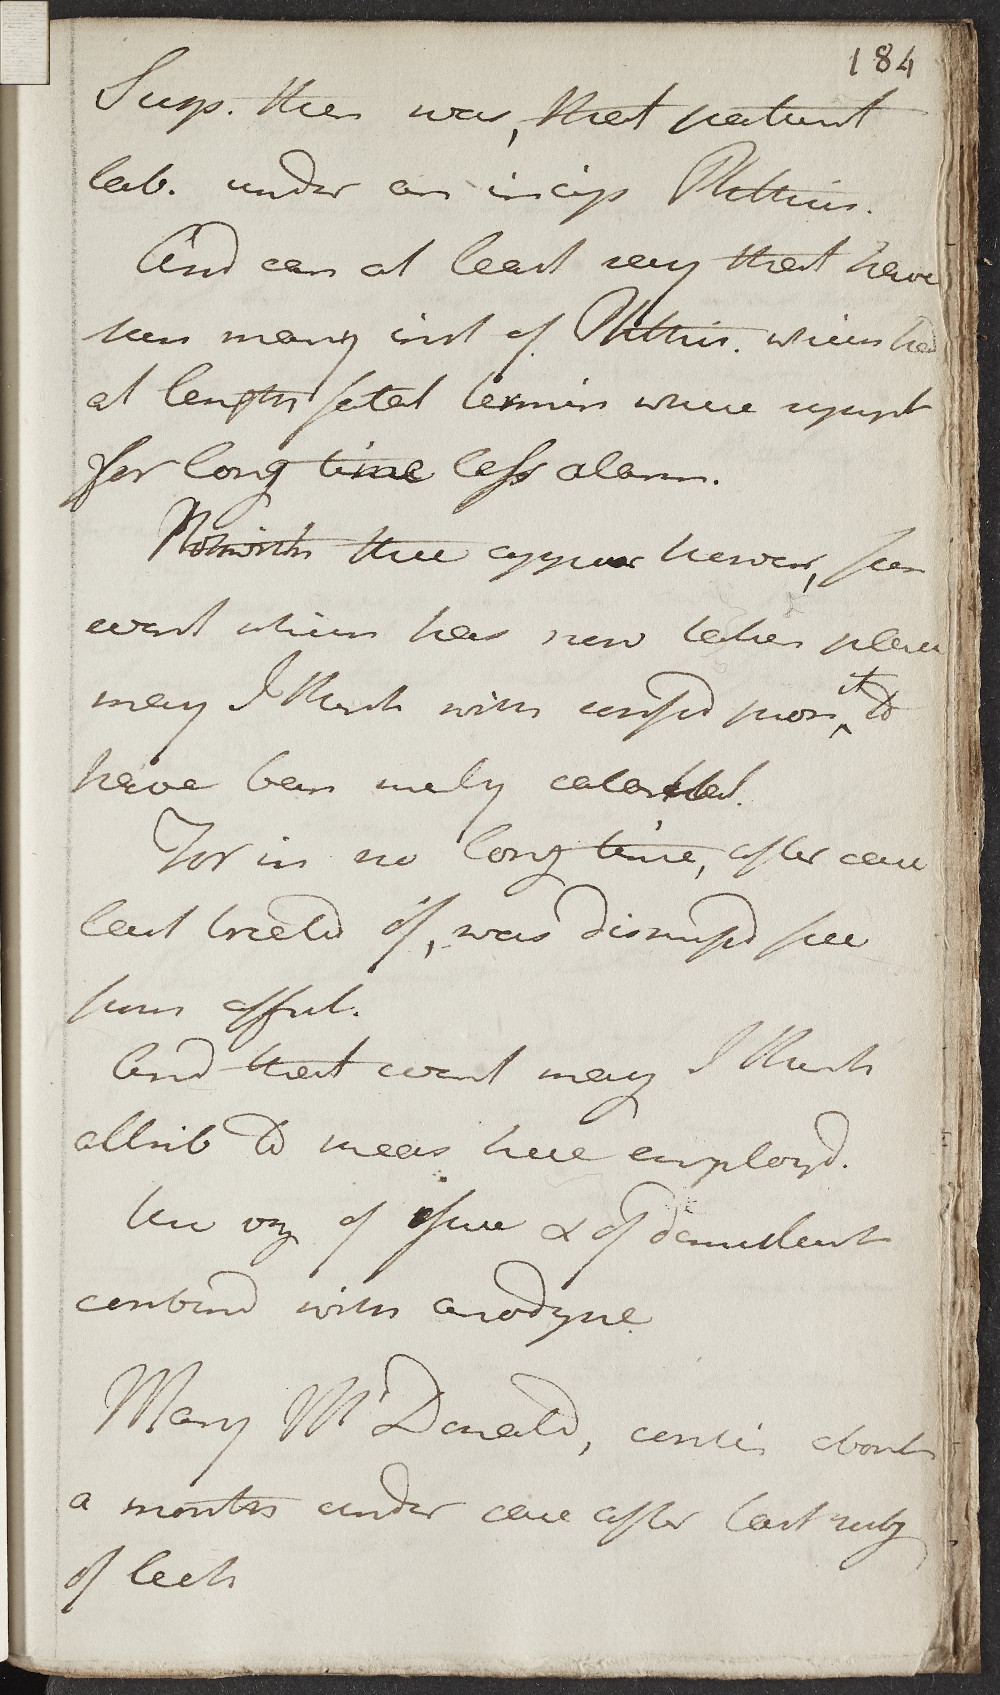 184
Susp. then was, that patient
lab. under an incip Phthisis.
And can at least say that have
seen many inst of Phthis. which had
at length fatal termin where sympt
for long time less alarm.
Notwith these appear however, from
event which has now taken place
may I think with consid pron it, to
have been merely catarrhal.
For in no long time, after case
last treatd of, was dismissd free
from affect.
And that event may I think
attrib to meas here employd.
the orig of issue & of demulcent
combind with anodyne
Mary McDonald, contin about
a month under care after last subj
of lect